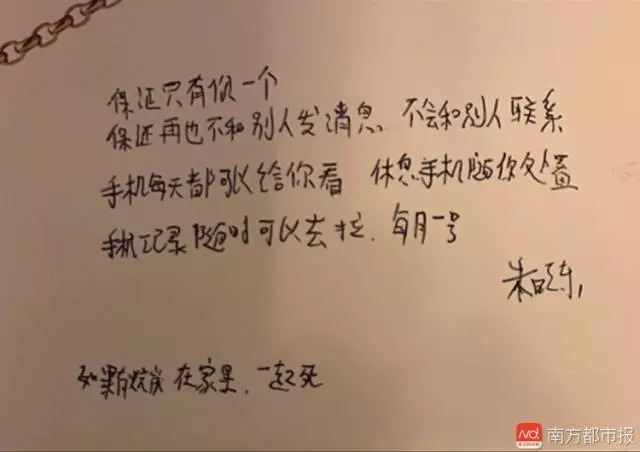 保证只有你一个
保证再也不和别人发消息 不会和别人联系
手机每天都可以给你看 休息手机随你处置
手机记录随时可以去拉、每月一号
朱晓东
如果有炭在家里、一起死
南方都市报